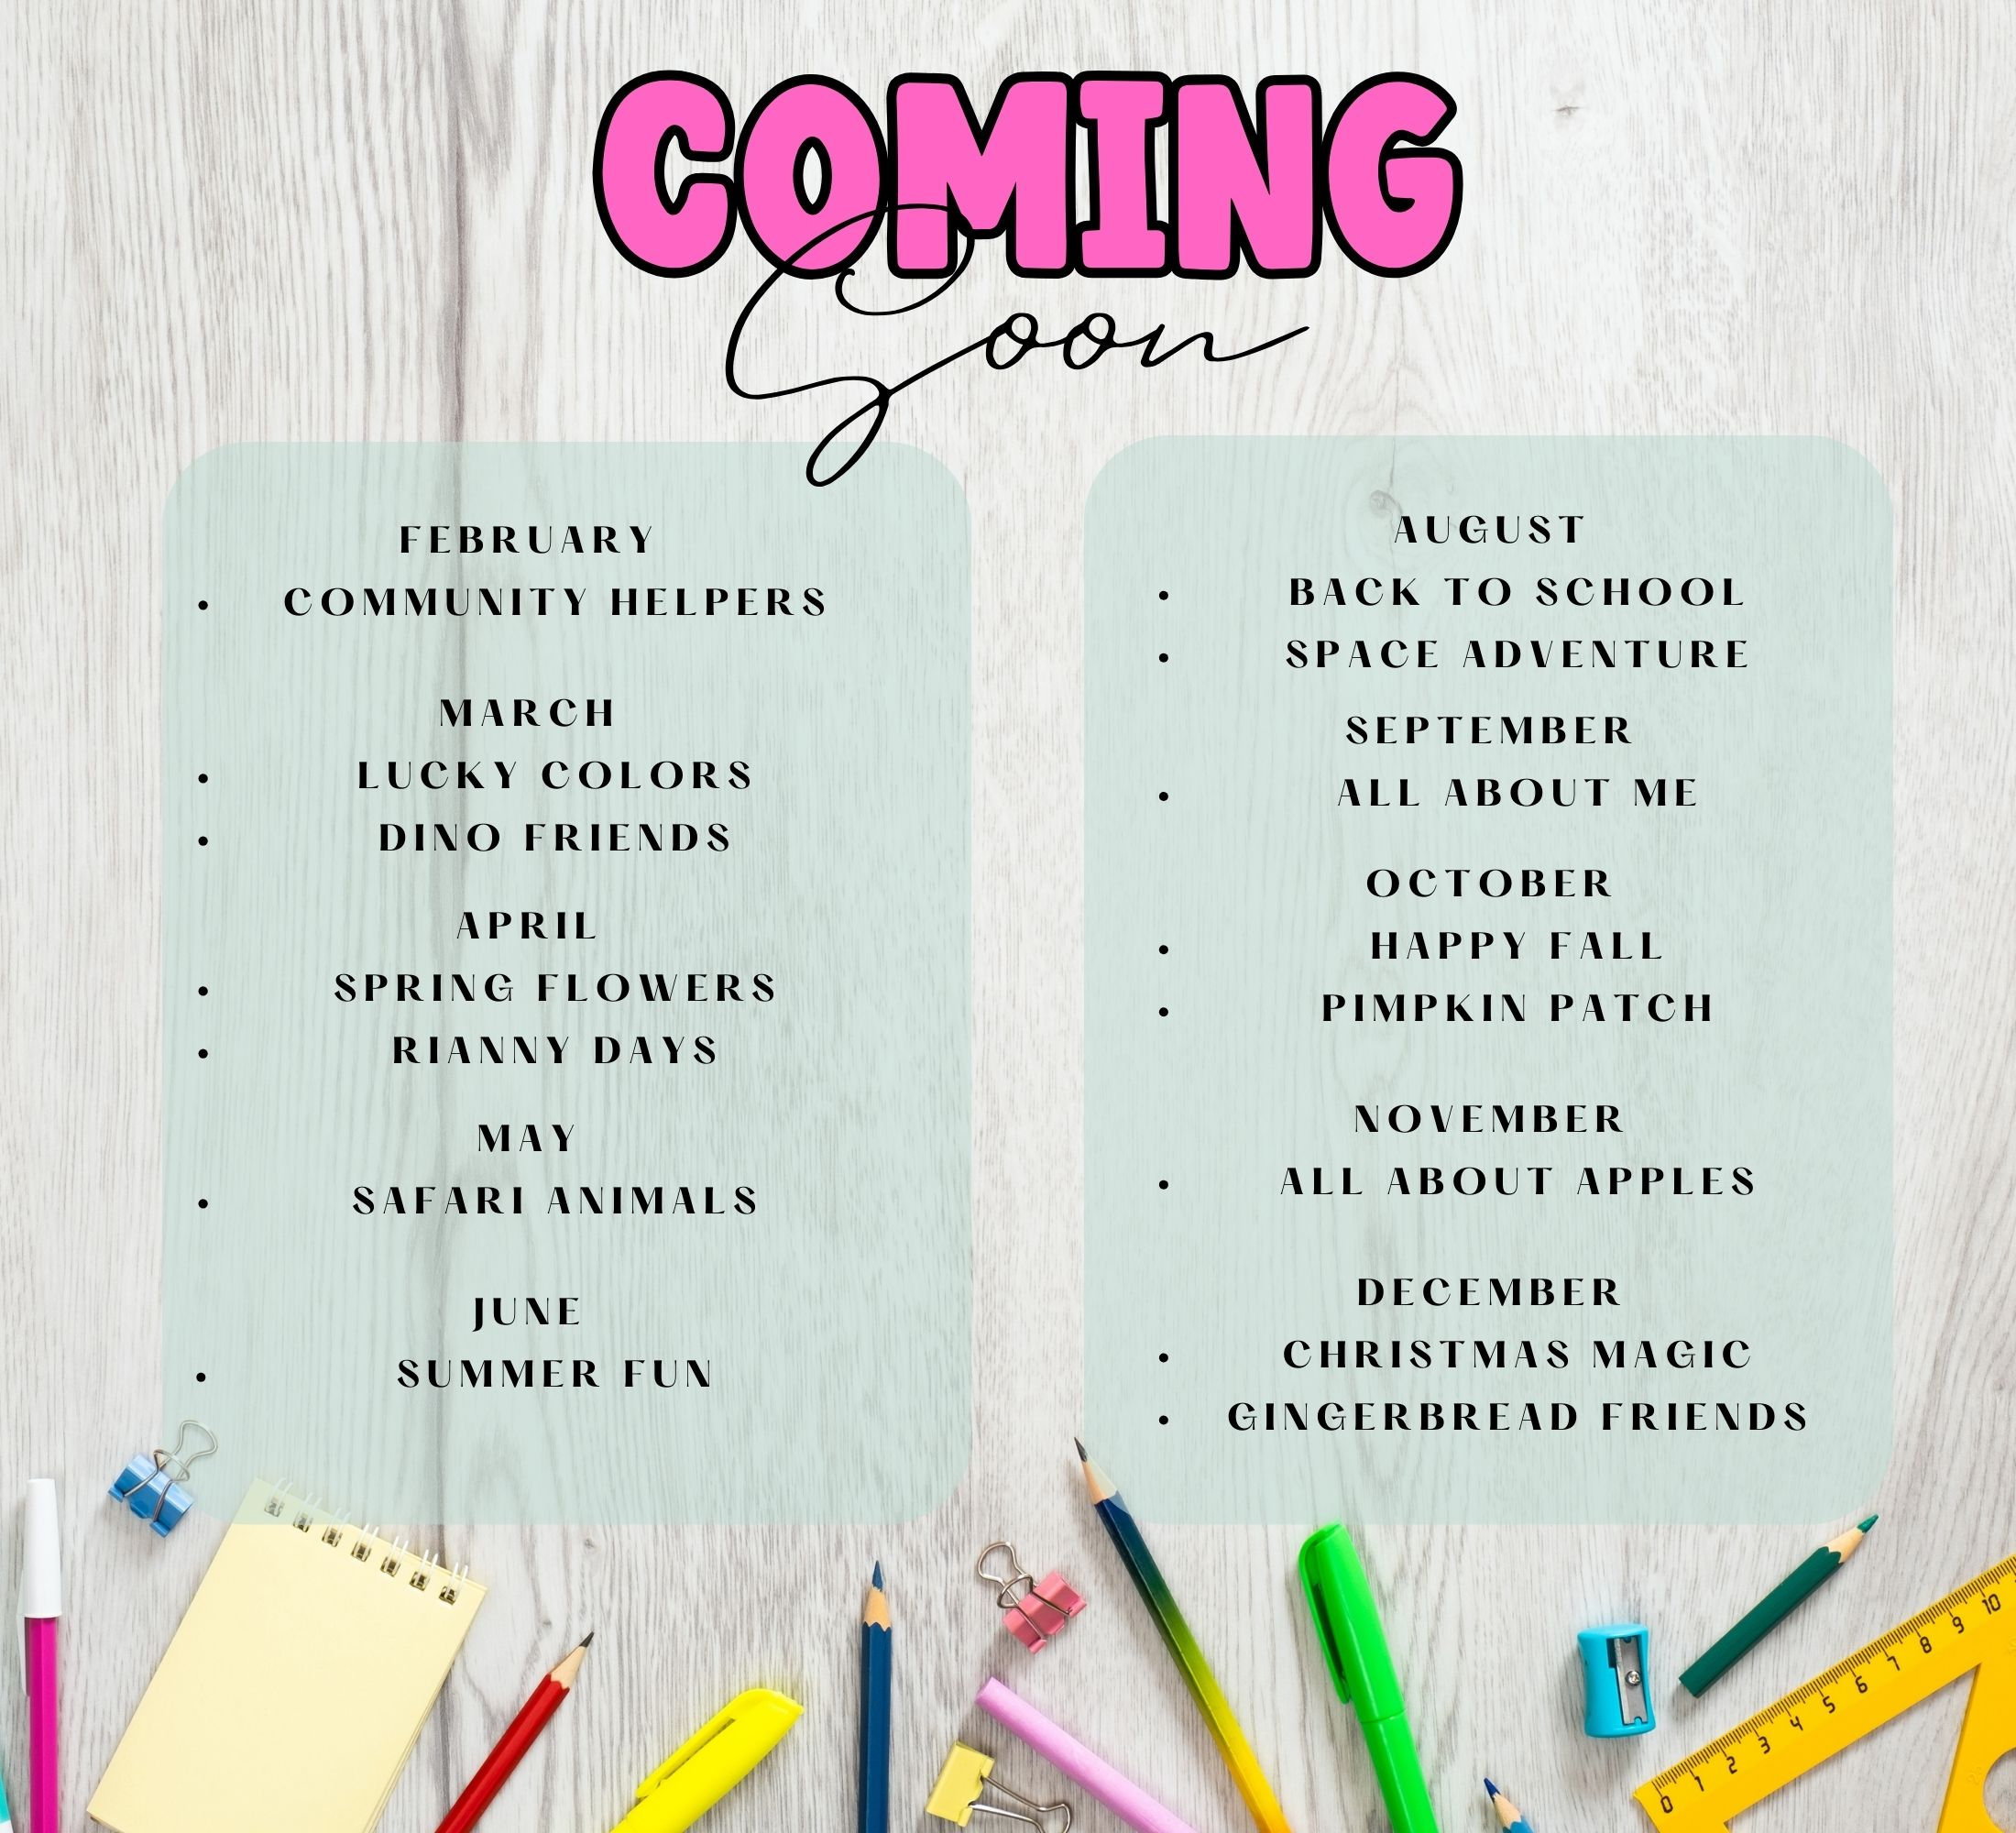 COMING
Soon
FEBRUARY
• COMMUNITY HELPERS
MARCH
• LUCKY COLORS
• DINO FRIENDS
APRIL
• SPRING FLOWERS
• RIANNY DAYS
MAY
• SAFARI ANIMALS
JUNE
• SUMMER FUN
AUGUST
• BACK TO SCHOOL
• SPACE ADVENTURE
SEPTEMBER
• ALL ABOUT ME
OCTOBER
• HAPPY FALL
• PIMPKIN PATCH
NOVEMBER
• ALL ABOUT APPLES
DECEMBER
• CHRISTMAS MAGIC
• GINGERBREAD FRIENDS
0 1 2 3 4 5 6 7 8 9 10